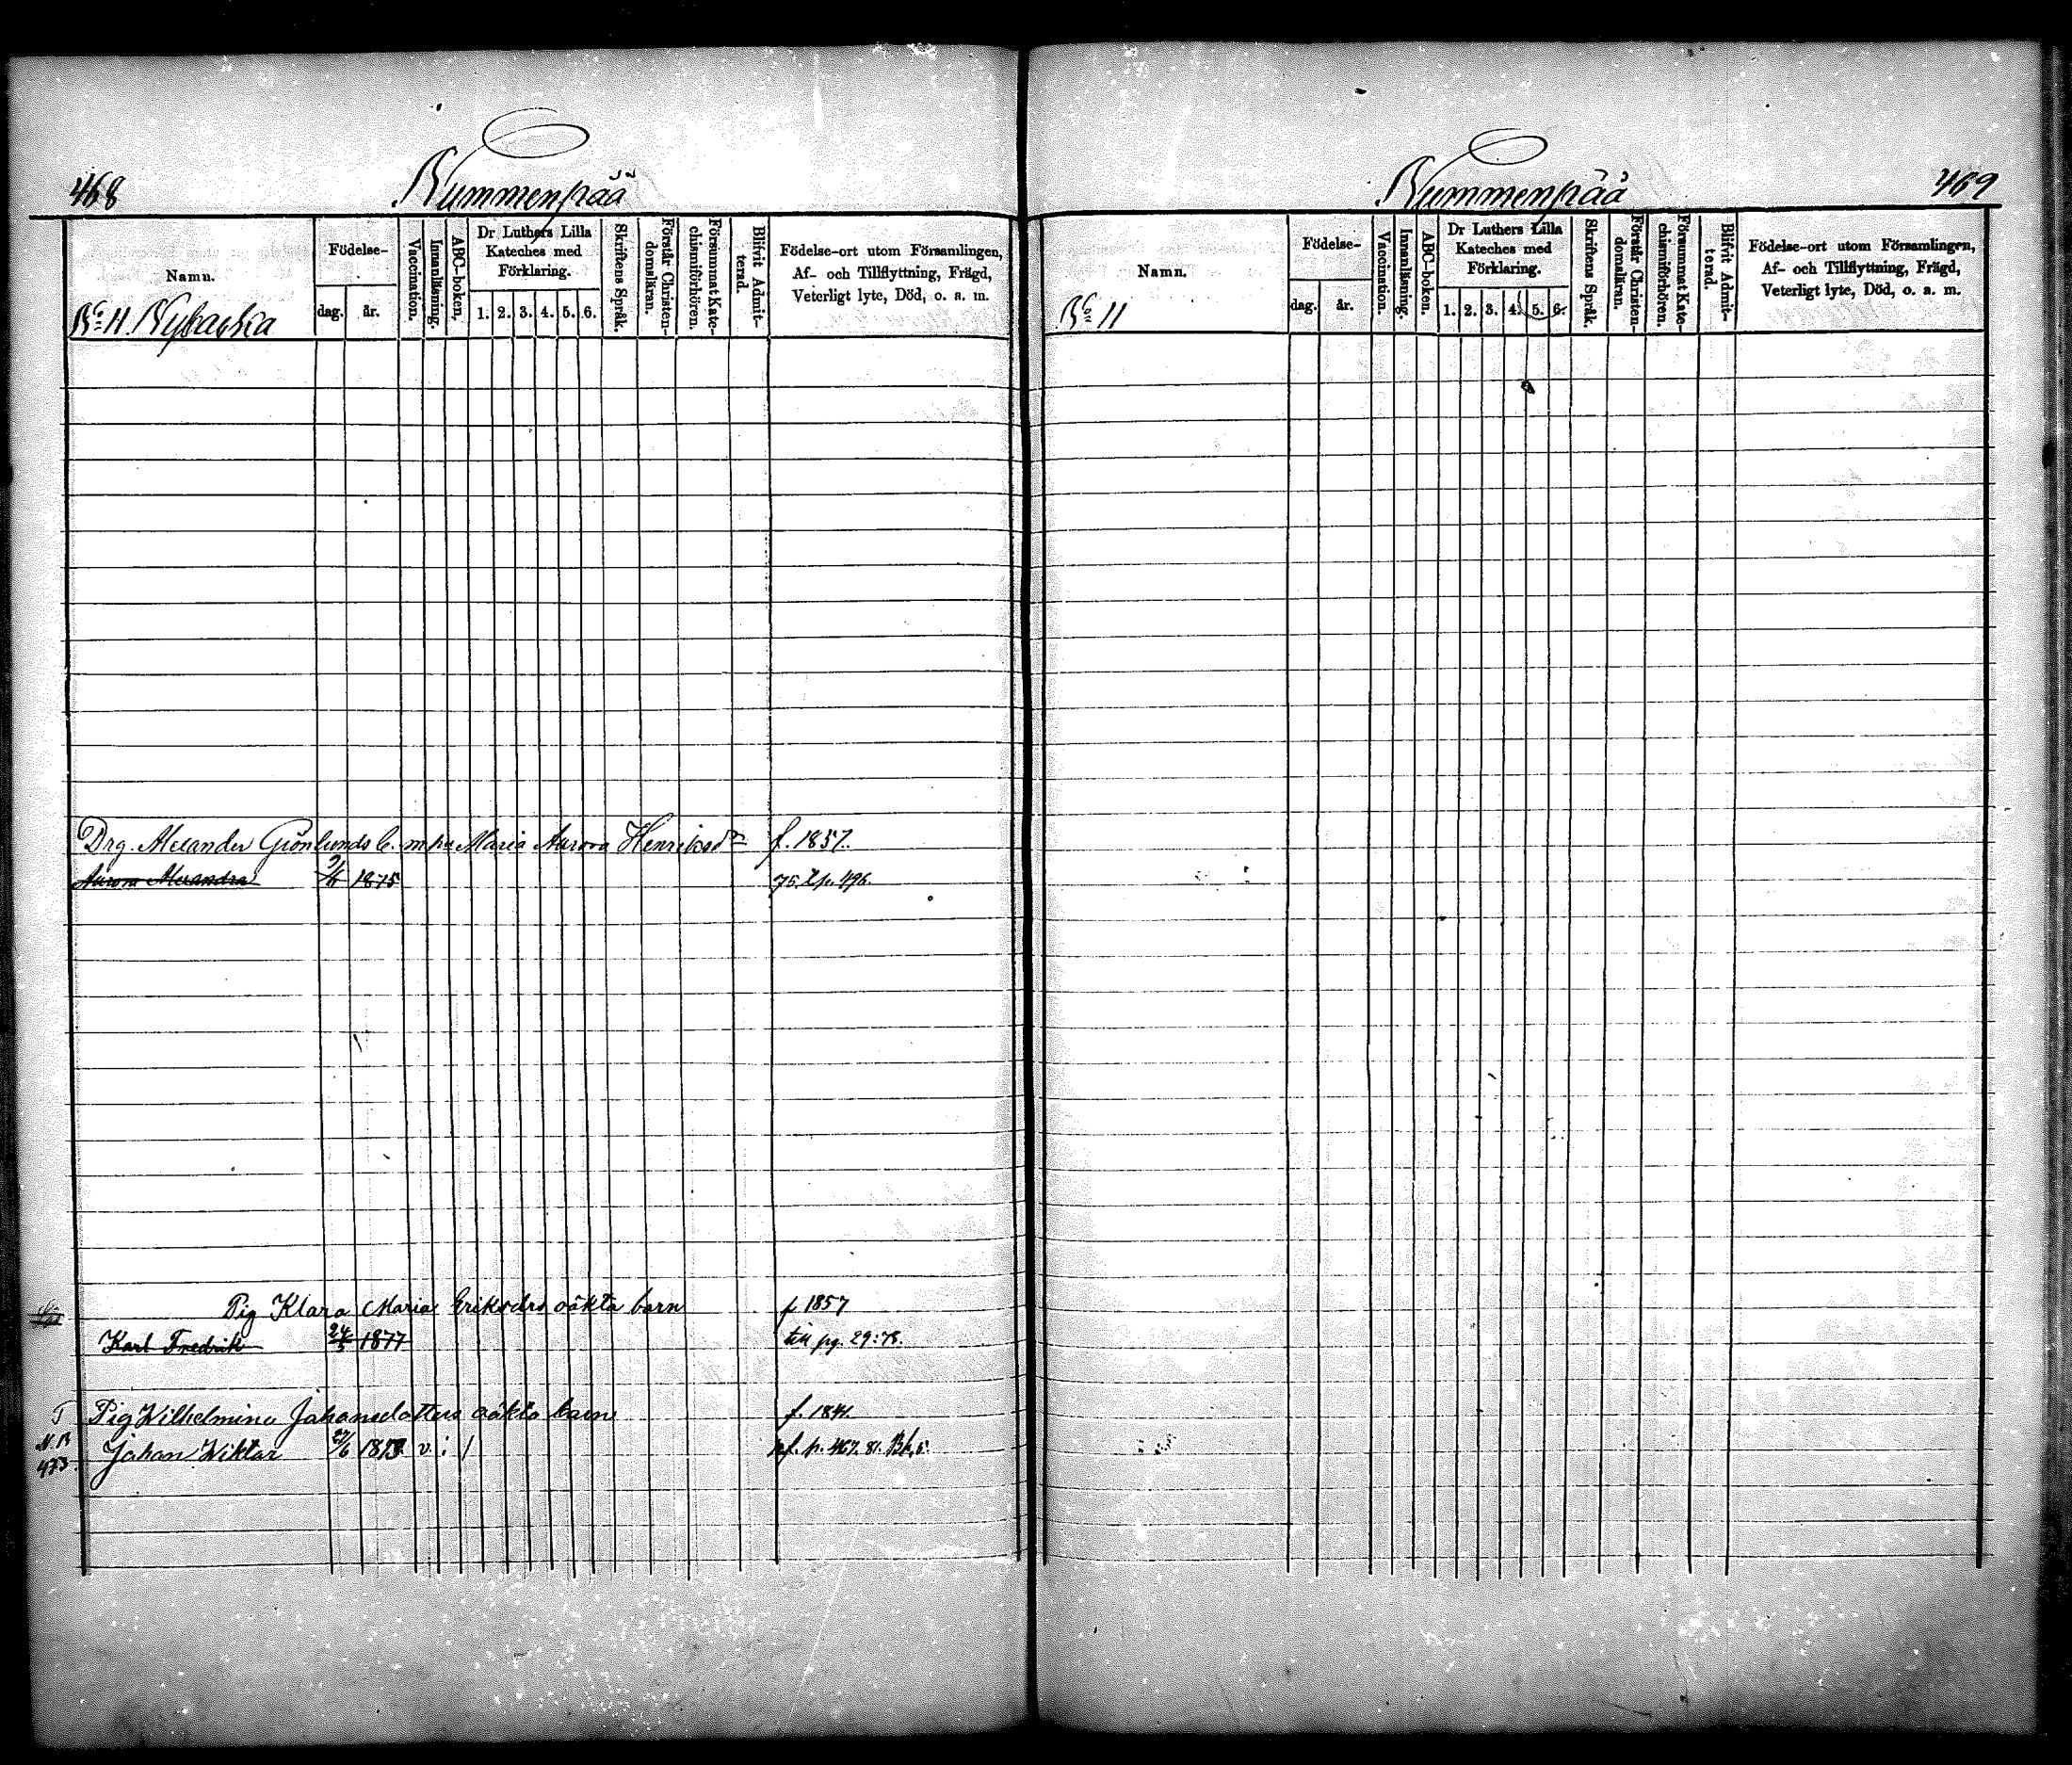 468 Nummenpää
Namn. Födelse- dag. år. Vaccination. Innanläsning. ABC-boken, Dr Luthers Lilla Kateches med Förklaring. 1. 2. 3. 4. 5. 6. Skriftens Språk. Förstår Christen-domsläran. Försummat Kate-chismiförhören. Blifvit Admit-terad. Födelse-ort utom Församlingen, Af- och Tillflyttning, Frägd, Veterligt lyte, Död, o. a. m.
No 11 Nybacka
Drg. Alexander Grönlunds b. m hu Maria Aurora Henriksdr f. 1857.
Aurora Alexandra 9/6 1875 75. 496.
Pig Klara Maria Eriksdrs oäkta barn f 1857
Karl Fredrik 24/5 1877 till pg. 29:78.
T Pig Wilhelmina Johansdotters oäkta barn f. 1841.
N.B Johan Wiktor 27/6 1878 v i / p. 467. 81.
473.
Nummenpää 469
Namn. Födelse- dag. år. Vaccination. Innanläsning. ABC-boken. Dr Luthers Lilla Kateches med Förklaring. 1. 2. 3. 4. 5. 6. Skriftens Språk. Förstår Christen-domsläran. Försummat Kate-chismiförhören. Blifvit Admit-terad. Födelse-ort utom Församlingen, Af- och Tillflyttning, Frägd, Veterligt lyte, Död, o. a. m.
No 11